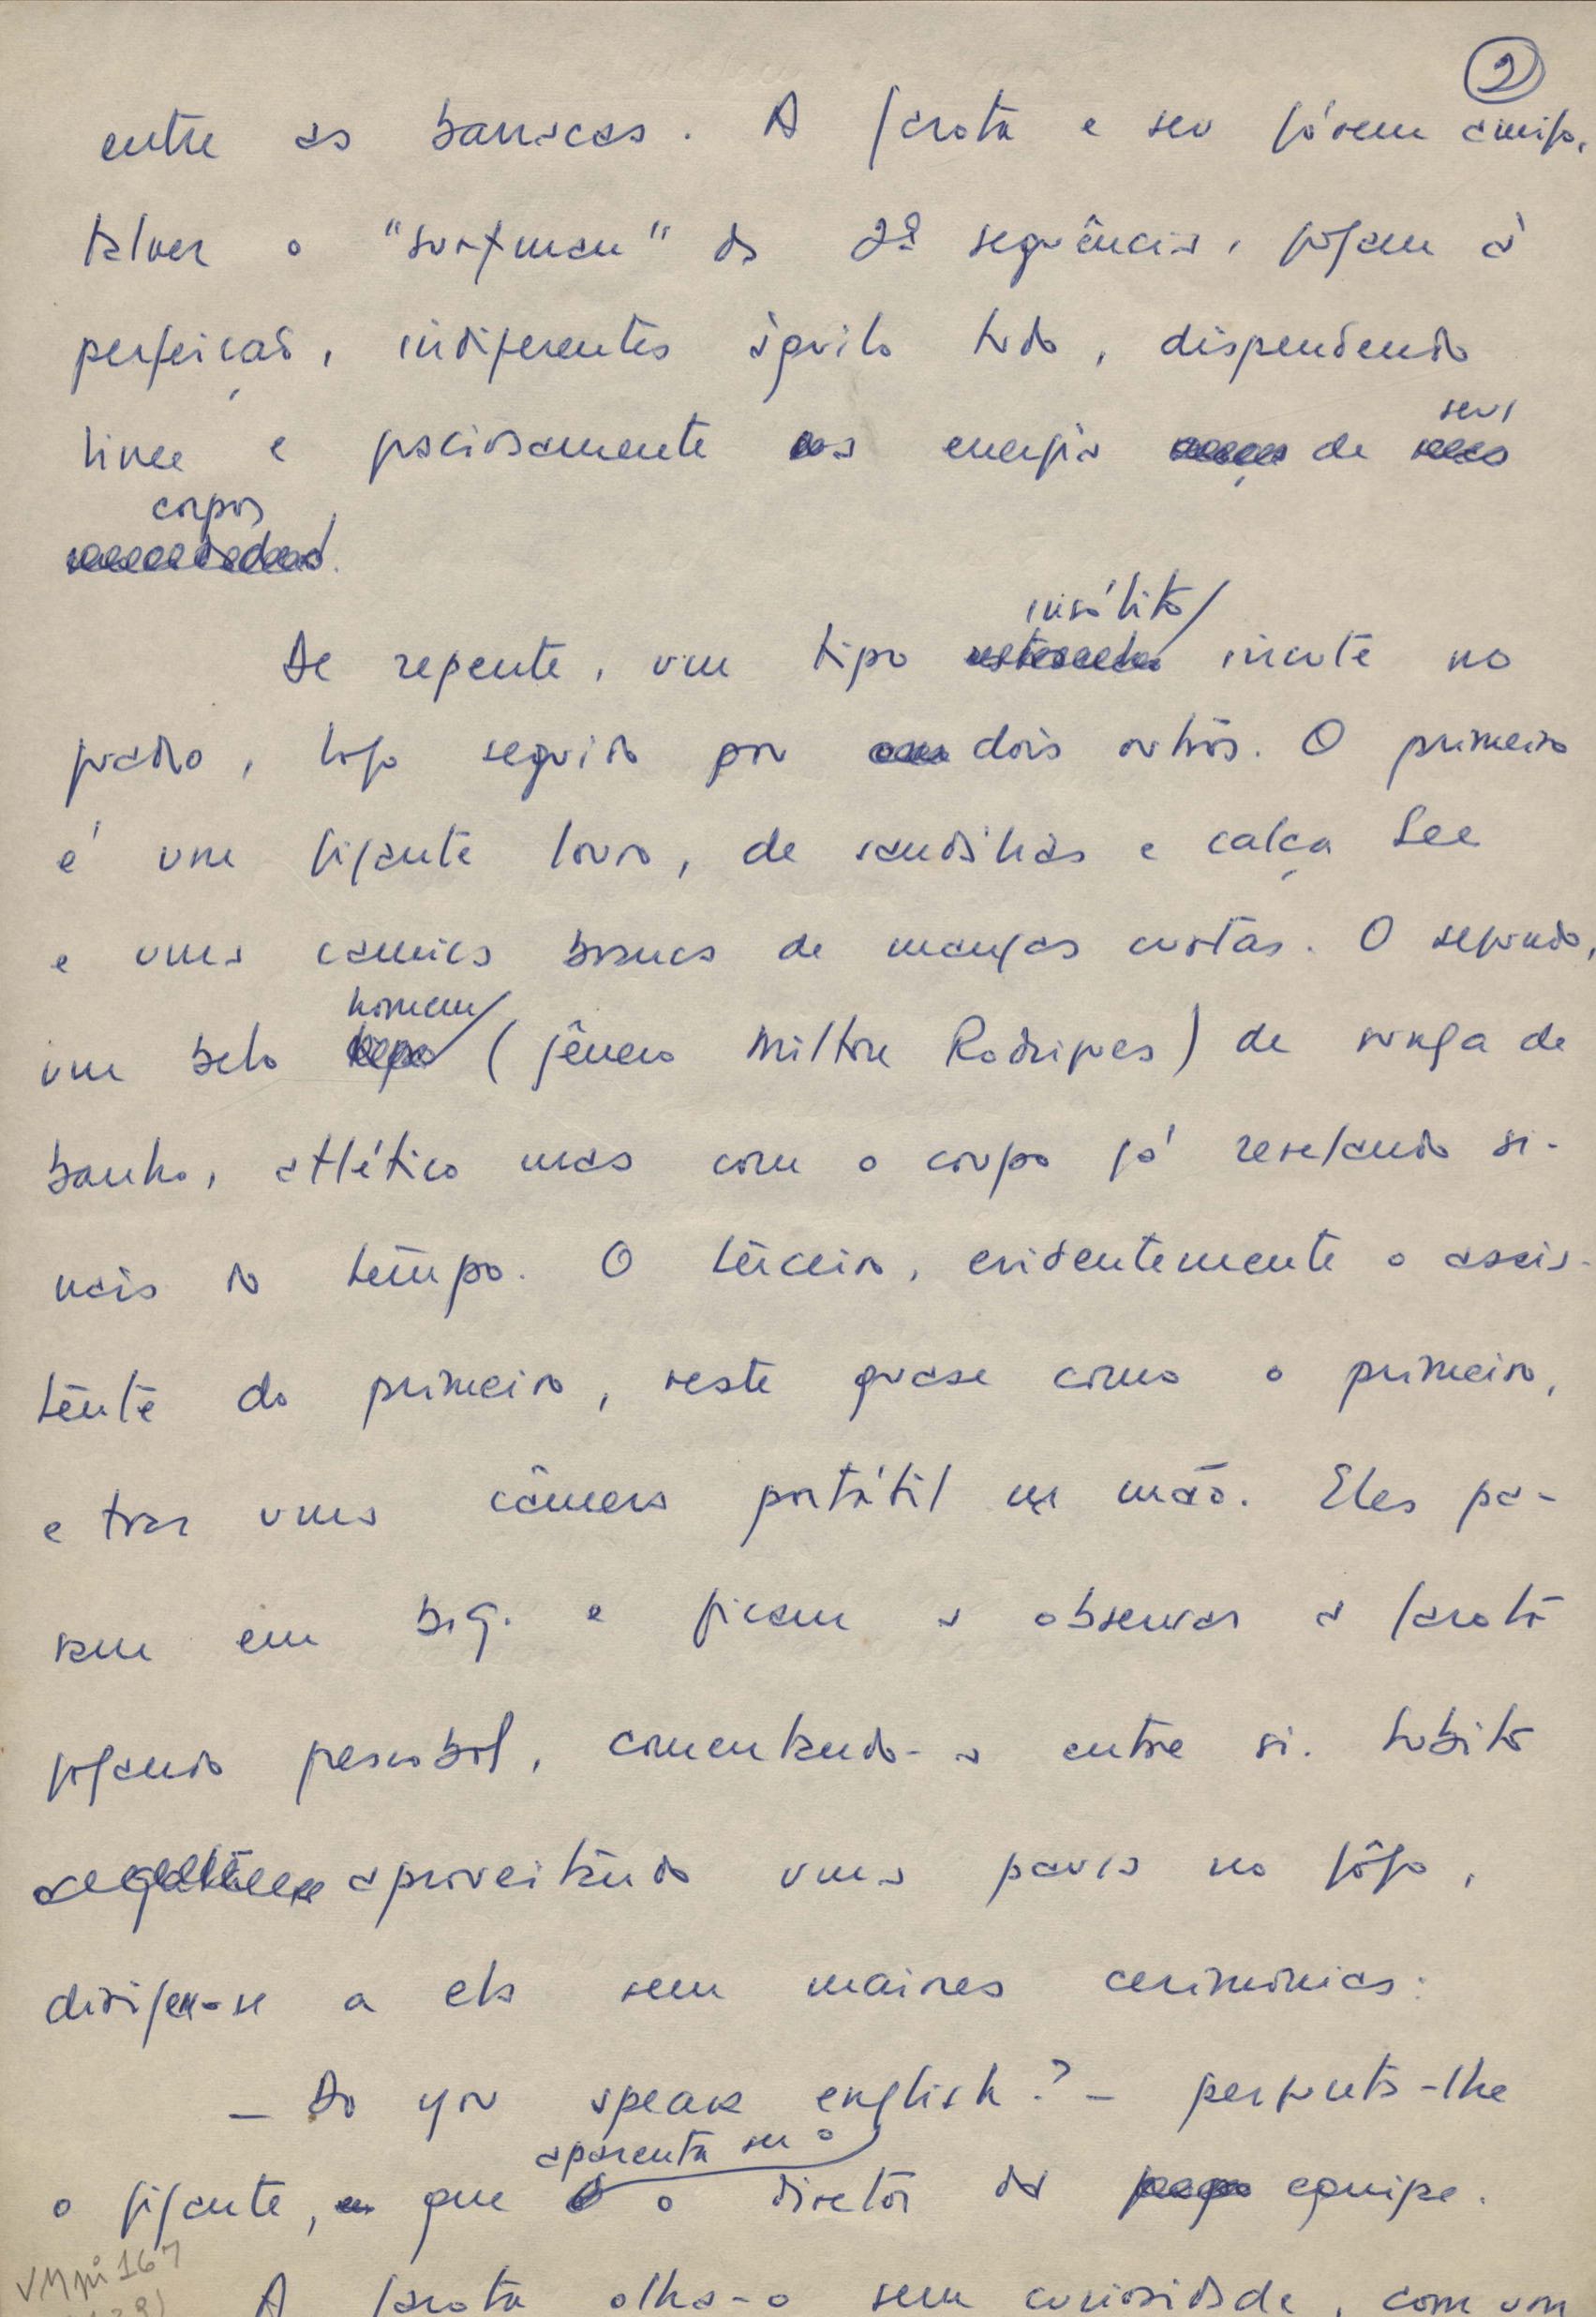 2
entre as barracas. A garota e seu jóvem amigo,
talvez o "surfman" da 2ª sequência, jogam à
perfeição, indiferentes àquilo tudo, dispendendo
livre e graciosamente a energia de seus
corpos.
De repente, um tipo insólito irrompe no
quadro, logo seguido por dois outros. O primeiro
é um gigante louro, de sandálias e calça Lee
e uma camisa branca de mangas curtas. O segundo,
um belo homem (gênero Milton Rodrigues) de sunga de
banho, atlético mas com o corpo já revelando si-
nais do tempo. O terceiro, evidentemente o assis-
tente do primeiro, veste quase como o primeiro,
e traz uma câmera portátil na mão. Eles pa-
ram em B.G. e ficam a observar a garota
jogando pescobol, comentando-a entre si. Súbito
aproveitando uma pausa no jôgo,
dirigem-se a ela sem maiores cerimônias:
— Do you speak english? — pergunta-lhe
o gigante, que aparenta ser o diretor da equipe.
A garota olha-o sem curiosidade, com um
VMpi 167